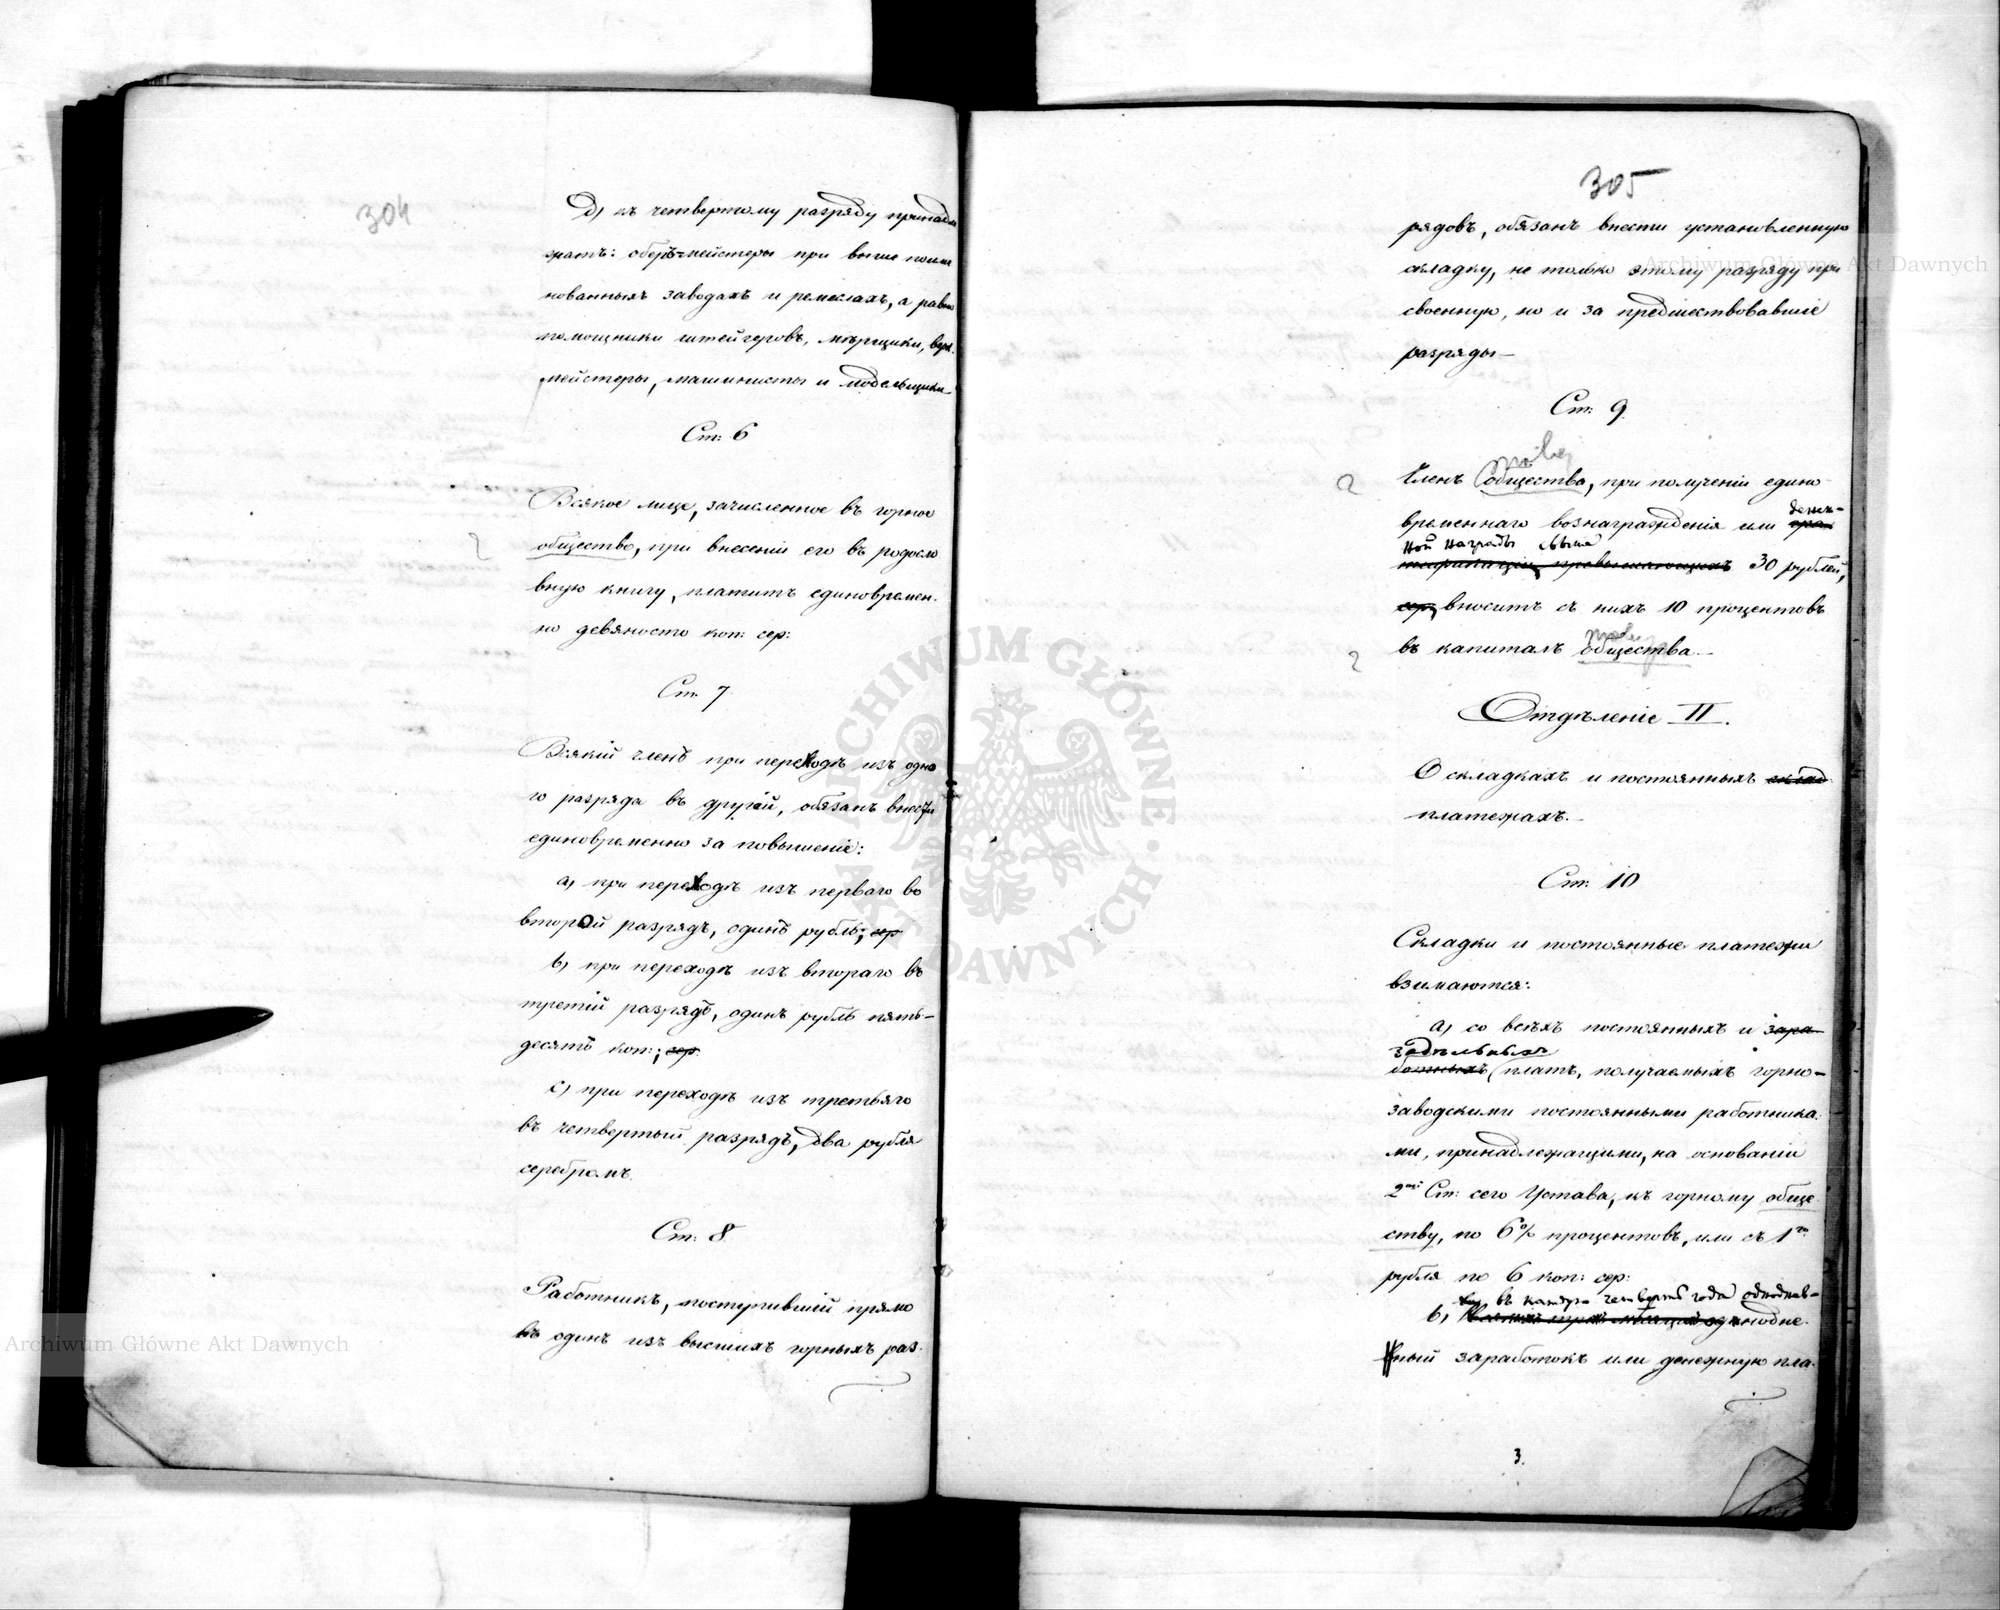 304
д) къ четвертому разряду принадле
жатъ: оберъ-мейстеры при выше поиме
нованныхъ заводахъ и ремеслахъ, а равно
помощники штейгеровъ, мѣрщики, верк
мейстеры, машинисты и модельщики
Ст: 6
Всякое лице, зачисленное въ горное
общество, при внесеніи его въ родосло
вную книгу, платитъ единовремен-
но девяносто коп: сер:
Ст. 7.
Всякій членъ при переходѣ изъ одно
го разряда въ другій, обязанъ внести
единовременно за повышеніе:
а) при переходѣ изъ перваго во
второй разрядъ, одинъ рубль; сер
b) при переходѣ изъ втораго въ
третій разрядъ, одинъ рубль пять-
десятъ коп:; сер.
с) при переходѣ изъ третьяго
въ четвертый разрядъ, два рубля
серебромъ.
Ст: 8.
Работникъ, поступившій прямо
въ одинъ изъ высшихъ горныхъ раз.
305
рядовъ, обязанъ внести установленную
складку, не только этому разряду при
своенную, но и за предшествовавшіе
разряды
Ст: 9.
Членъ Общества, при полученіи едино
временнаго вознагражденія или
денеж-
ной награды свыше
30 рублей,
сер, вноситъ съ нихъ 10 процентовъ
въ капиталъ общества.
Отдѣленіе II.
О складкахъ и постоянныхъ склад
платежахъ.
Ст: 10
Складки и постоянные платежи
взимаются:
а) со всѣхъ постоянныхъ и зара
задѣльныхъ
ботныхъ платъ, получаемыхъ горно-
заводскими постоянными работника.
ми, принадлежащими, на основаніи
2ой Ст: сего Устава, къ горному обще
ству, по 6% процентовъ, или съ 1го
рубля по 6 коп: сер:
въ каждую четверть года одноднев-
b) однодне.
ный заработокъ или денежную пла.
3.
Archiwum Główne Akt Dawnych
ARCHIWUM GŁÓWNE AKT DAWNYCH
Archiwum Główne Akt Dawnych